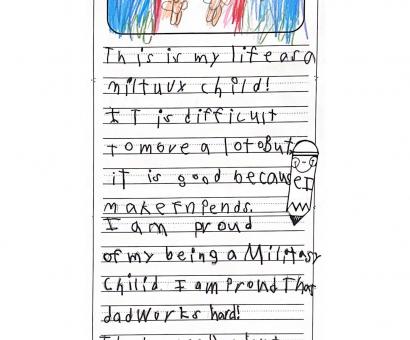 This is my life as a
miltuvx child!
IT is difficult
to move a lot. But
it is good because I
make frpends.
I am proud
of my being a Militasy
Chilid. I am Proud That
dad Works hard!